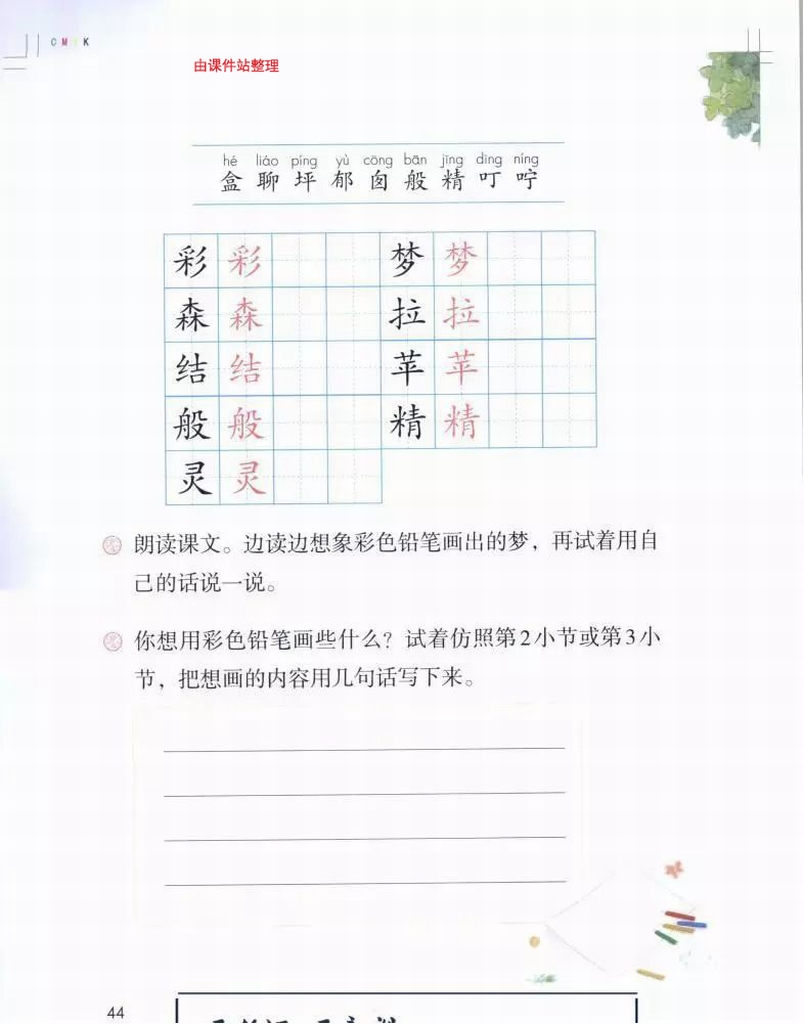 CMYK
由课件站整理
hé liáo píng yù cōng bān jīng dīng níng
盒 聊 坪 郁 囱 般 精 叮 咛
彩 彩 梦 梦
森 森 拉 拉
结 结 苹 苹
般 般 精 精
灵 灵
朗读课文。边读边想象彩色铅笔画出的梦，再试着用自
己的话说一说。
你想用彩色铅笔画些什么？试着仿照第2小节或第3小
节，把想画的内容用几句话写下来。
44